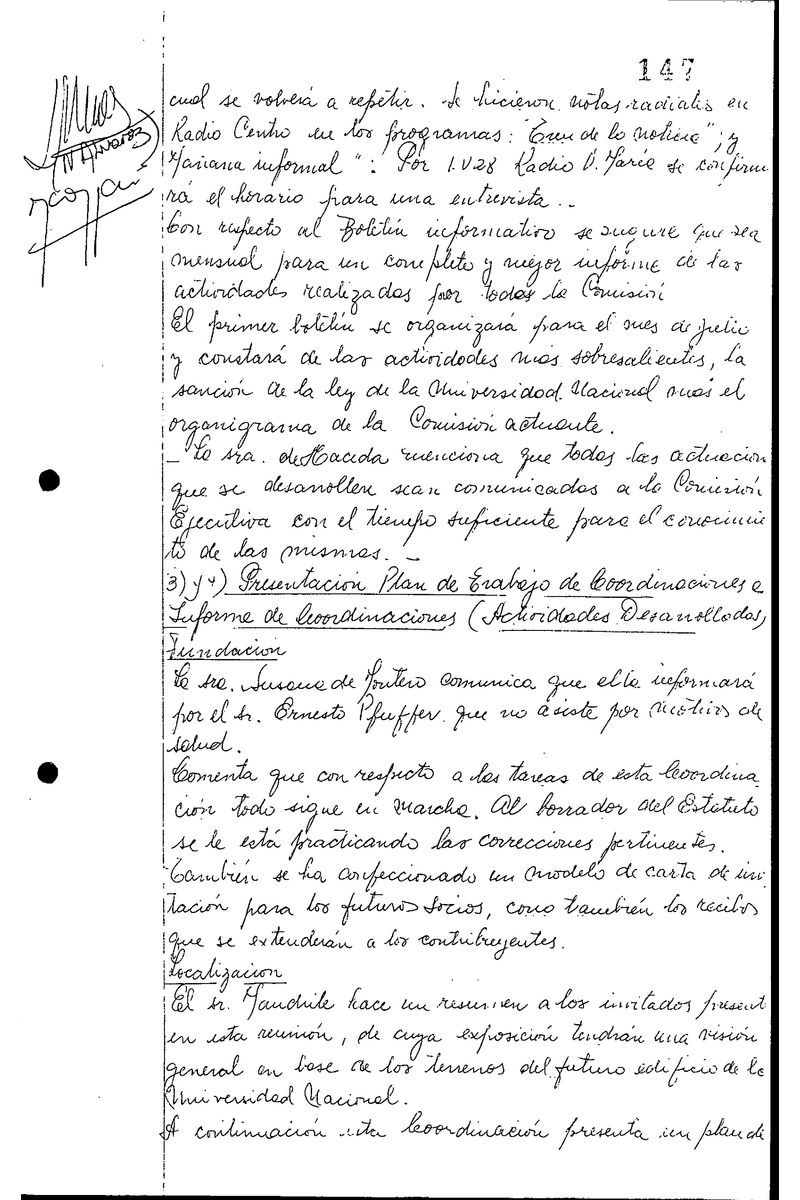 147
N Alvarez
cual se volverá a repetir. Se hicieron notas radiales en
Radio Centro en los programas: "Eren de la noticia"; y
"Mañana informal": Por L.V28 Radio V. María se confirma
rá el horario para una entrevista.-
Con respecto al Boletín informativo se sugiere que sea
mensual para un completo y mejor informe de las
actividades realizadas por todas la Comisión
El primer boletín se organizará para el mes de julio
y constará de las actividades mas sobresalientes, la
sanción de la ley de la Universidad Nacional mas el
organigrama de la Comisión actuante.
_ La sra. de Haceda menciona que todas las actuacion
que se desarrollen sean comunicadas a la Comisión
Ejecutiva con el tiempo suficiente para el conocimie
to de las mismas. _
3) y 4) Presentación Plan de Trabajo de Coordinaciones e
Informe de Coordinaciones (Actividades Desarrolladas)
Fundación
La sra. Susana de Montero comunica que ella informará
por el sr. Ernesto Pfuffer que no asiste por motivos de
salud.
Comenta que con respecto a las tareas de esta Coordina
ción todo sigue en marcha. Al borrador del Estatuto
se le está practicando las correcciones pertinentes.
También se ha confeccionado un modelo de carta de inv
tación para los futuros socios, como también los recibos
que se extenderán a los contribuyentes.
Localizacion
El sr. Mandrile hace un resumen a los invitados present
en esta reunión, de cuya exposición tendrán una visión
general en base de los terrenos del futuro edificio de la
Universidad Nacional.
A continuación esta Coordinación presenta un plan de